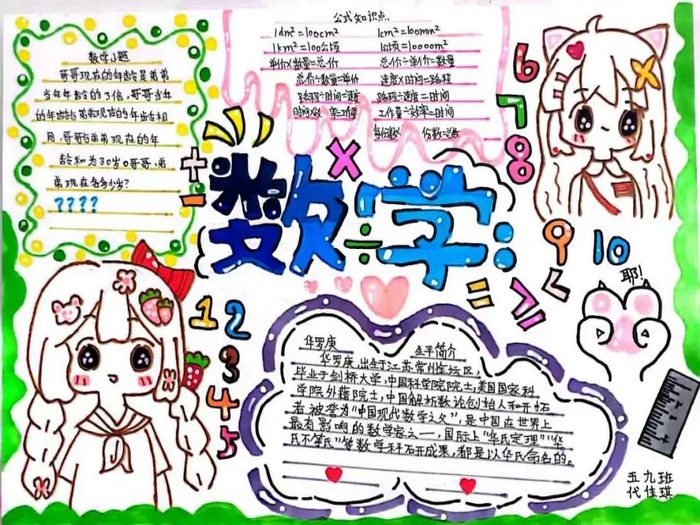 数学小题
哥哥现在的年龄是弟弟
当年年龄的3倍,哥哥当年
的年龄与弟弟现在的年龄相
同,哥哥与弟弟现在的年
龄和为30岁
弟现在各多少岁?
????
公式知识点
1dm²=100cm²
1km²=100公顷
单价×数量=总价
总价÷数量=单价
路程÷时间=速度
1km²=
1公顷=10000m²
总价÷单价=数量
速度×时间=路程
路程÷速度=时间
工作量÷效率=时间
每份数×
份数=总数
数学
+
-
×
÷
=
1 2
3
4
5
6
7
8
9 10
耶!
华罗庚 生平简介
华罗庚,出生于江苏常州金坛区,
毕业于剑桥大学,中国科学院院士,美国国家科
学院外籍院士,中国解析数论创始人和开拓
者,被誉为"中国现代数学之父",是中国在世界上
最有影响的数学家之一,国际上"华氏定理""华
氏不等氏"等数学科研成果,都是以华氏命名的。
五九班
代佳琪